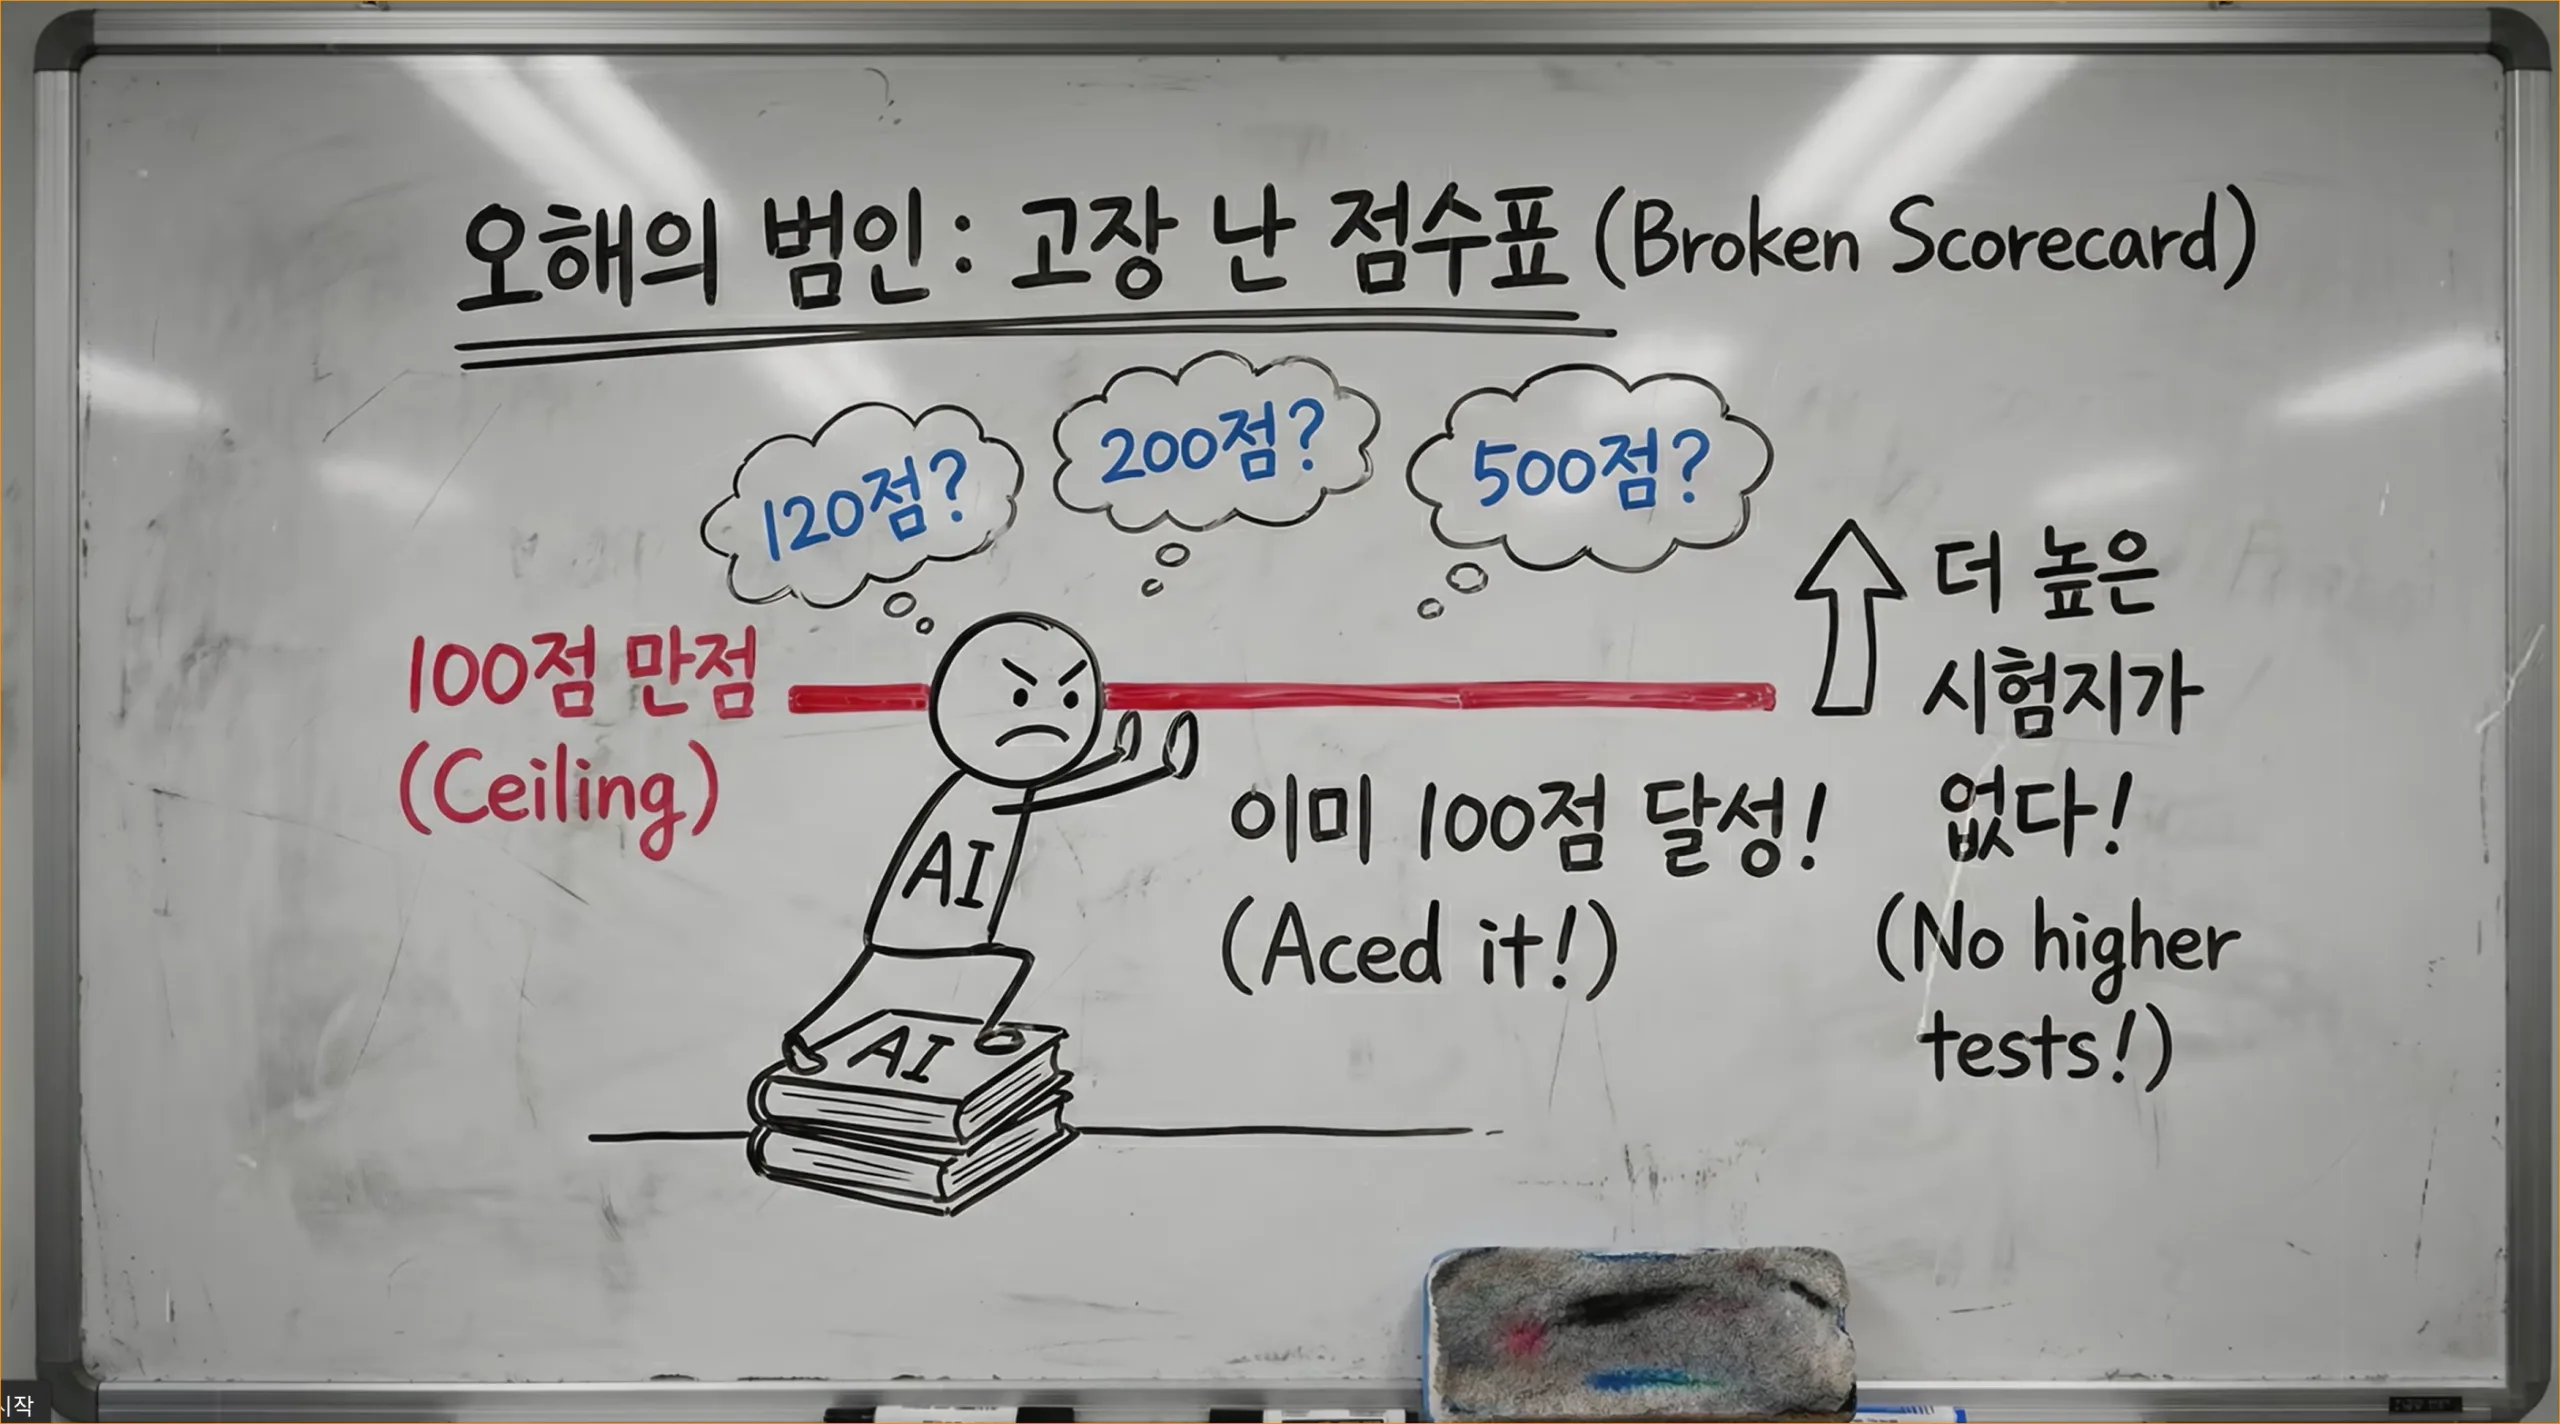 오해의 범인: 고장 난 점수표 (Broken Scorecard)
120점?
200점?
500점?
100점 만점
(Ceiling)
더 높은
시험지가
없다!
(No higher
tests!)
이미 100점 달성!
(Aced it!)
AI
AI
시작